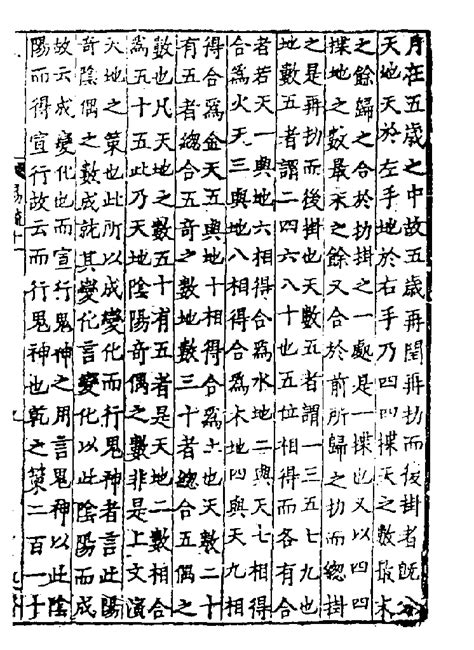 月在五歲之中故五歲再閏再扐而後掛者既分
天地天於左手地於右手乃四四揲天之數最末
之餘歸之合於扐掛之一處是一揲也又以四四
揲地之數最末之餘又合於前所歸之扐而總掛
之是再扐而後掛也天數五者謂一三五七九也
地數五者謂二四六八十也五位相得而各有合
者若天一與地六相得合爲水地二與天七相得
合爲火天三與地八相得合爲木地四與天九相
得合爲金天五與地十相得合爲土也天數二十
有五者總合五奇之數地數三十者總合五偶之
數也凡天地之數五十有五者是天地二數相合
爲五十五此乃天地陰陽奇偶之數非是上文演
天地之策也此所以成變化而行鬼神者言此陽
奇陰偶之數成就其變化言變化以此陰陽而成
故云成變化也而宣行鬼神之用言鬼神以此陰
陽而得宣行故云而行鬼神也乾之策二百一十
易疏十一